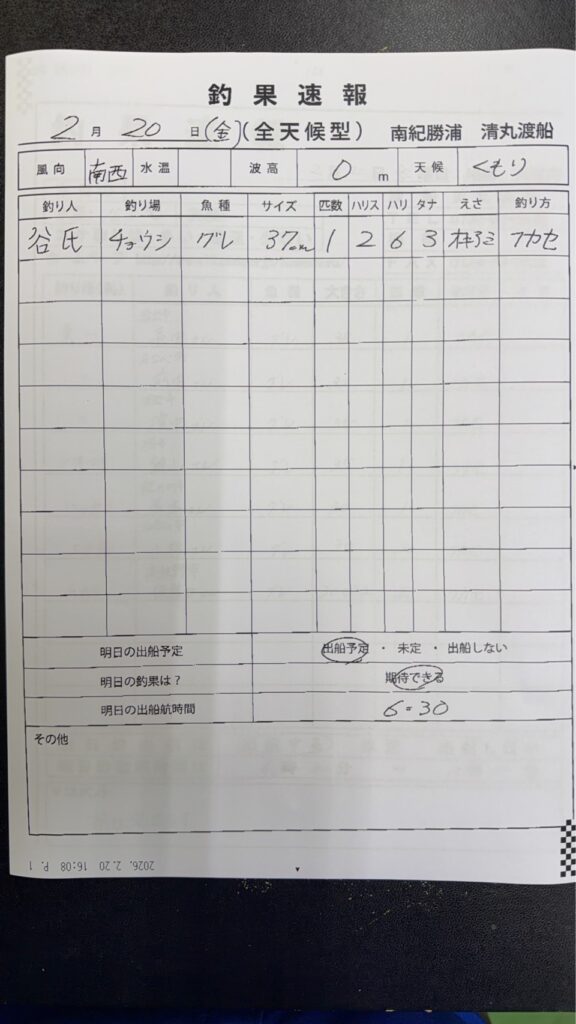 釣果速報
2月20日(金)(全天候型) 南紀勝浦 清丸渡船
風向 南西 水温 波高 0m 天候 くもり
釣り人 釣り場 魚種 サイズ 匹数 ハリス ハリ タナ えさ 釣り方
谷氏 チョウシ グレ 37cm 1 2 6 3 オキアミ フカセ
明日の出船予定 出船予定・未定・出船しない
明日の釣果は? 期待できる
明日の出船航時間 6:30
その他
2026. 2.20 16:08 P. 1